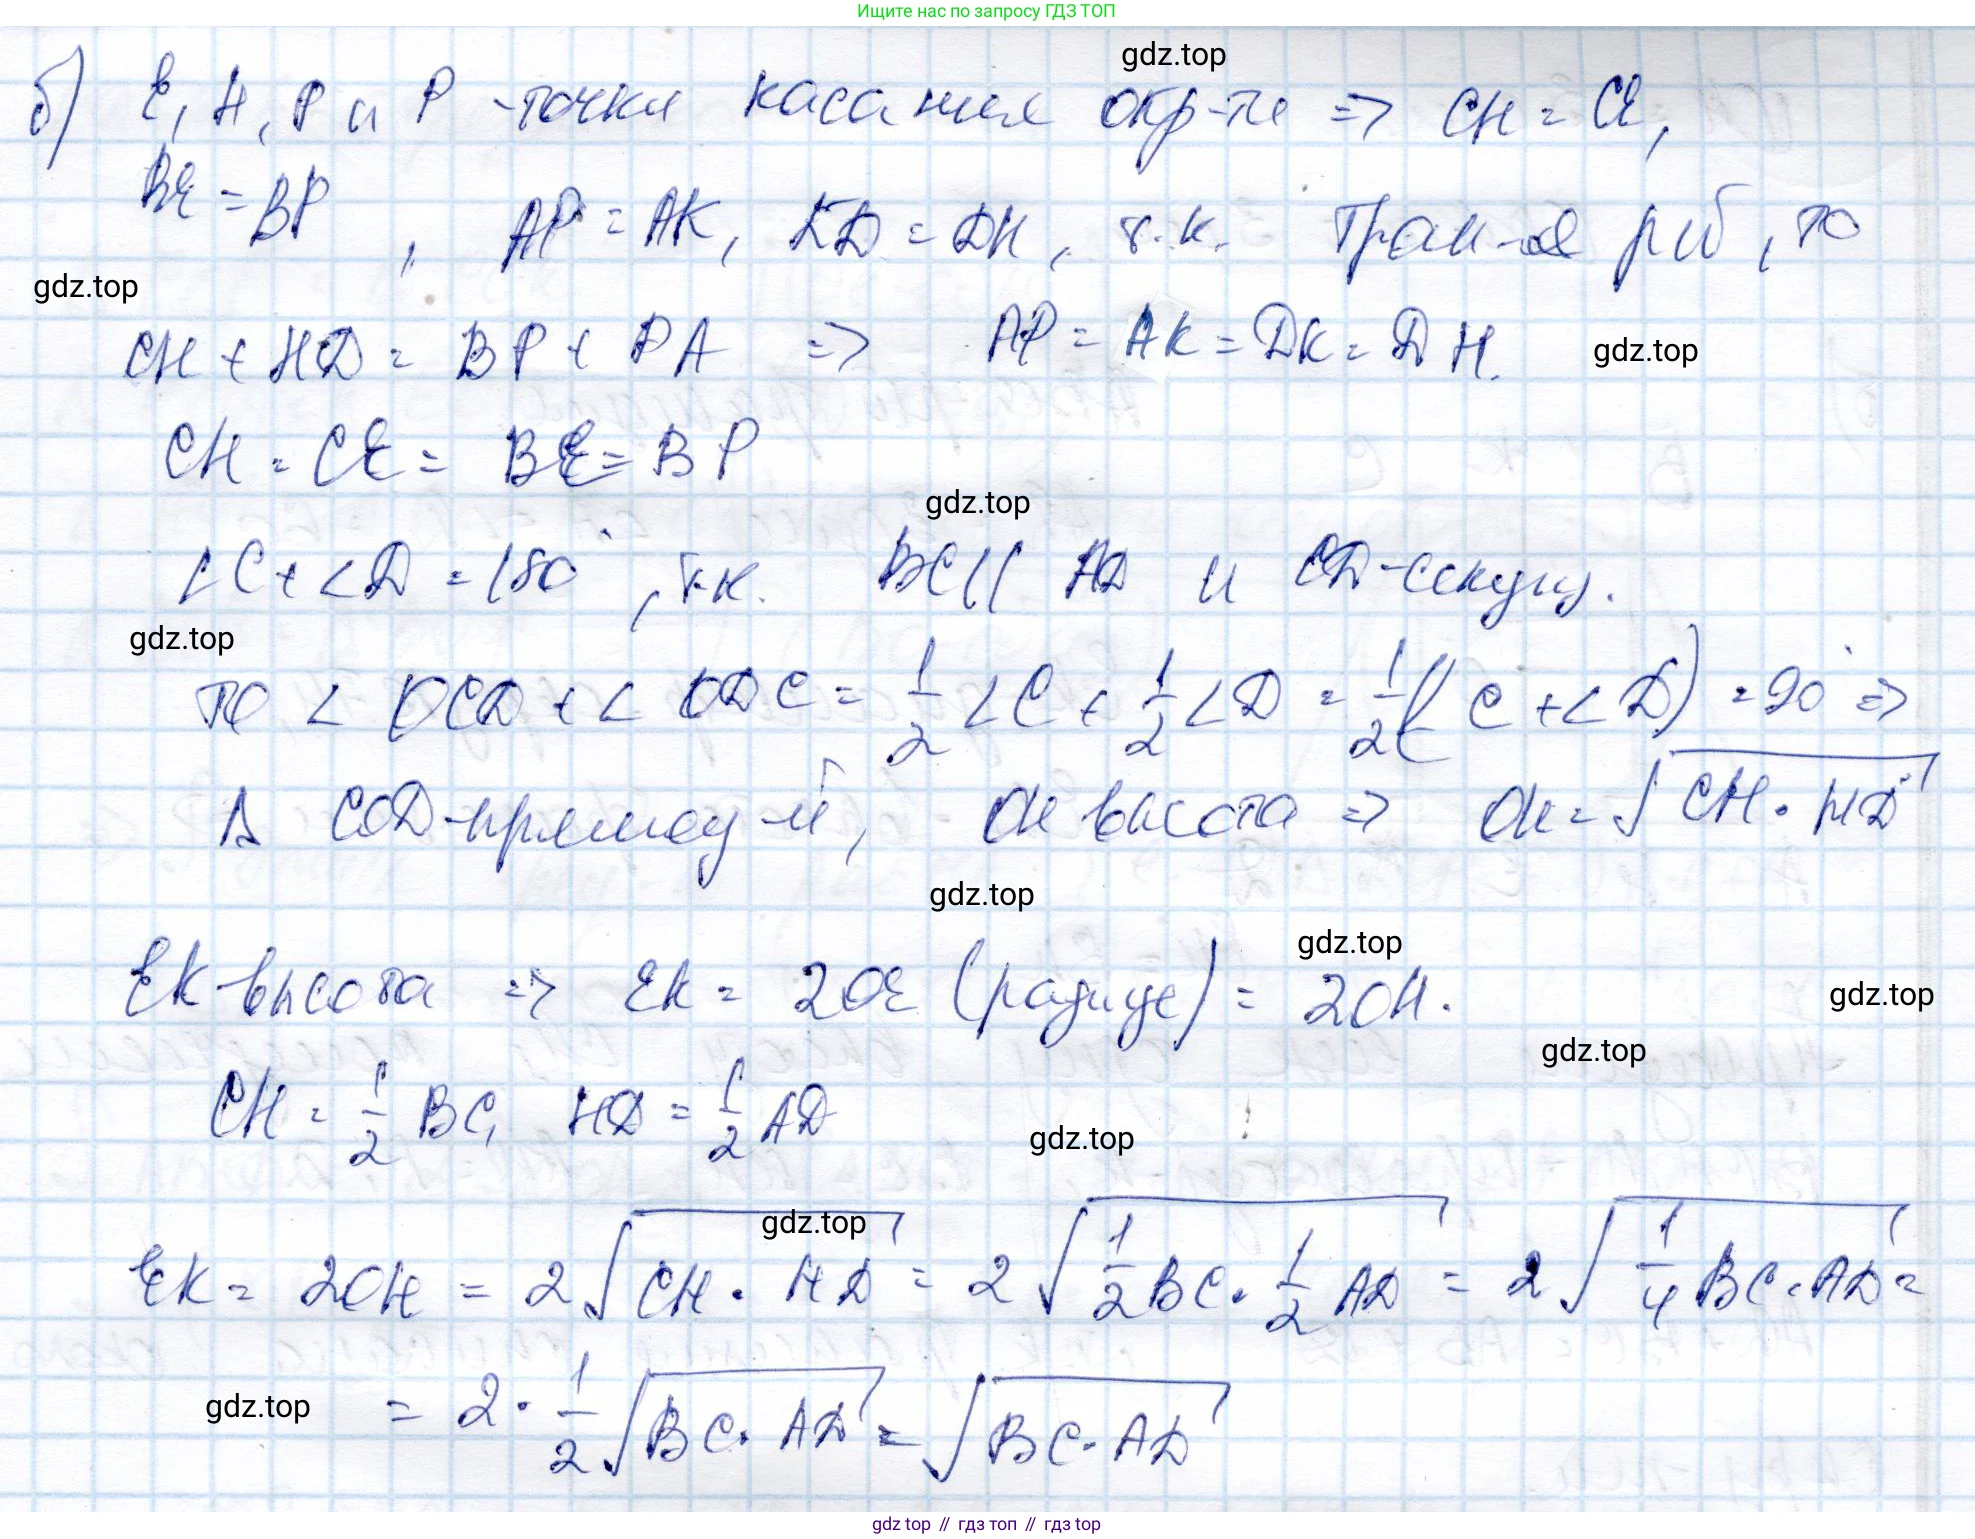 Ищите нас по запросу ГДЗ ТОП
gdz.top
б) E, H, P и P - точки касания окр-ти => CH = CE,
BE = BP, AP = AK, KD = DH, т.к. трап-я р/б, то
gdz.top
CH + HD = BP + PA => AP = AK = DK = DH.
gdz.top
CH = CE = BE = BP
gdz.top
∠C + ∠D = 180°, т.к. BC || AD и CD - секущ.
gdz.top
то ∠OCD + ∠ODC = 1/2 ∠C + 1/2 ∠D = 1/2(∠C + ∠D) = 90° =>
Δ COD - прямоуг-й, OH высота => OH = √(CH · HD)
gdz.top
gdz.top
EK - высота => EK = 2OE (радиус) = 2OH.
gdz.top
gdz.top
CH = 1/2 BC, HD = 1/2 AD
gdz.top
gdz.top
EK = 2OH = 2√(CH · HD) = 2√(1/2 BC · 1/2 AD) = 2√(1/4 BC · AD) =
gdz.top
= 2 · 1/2 √(BC · AD) = √(BC · AD)
gdz top // гдз топ // гдз top